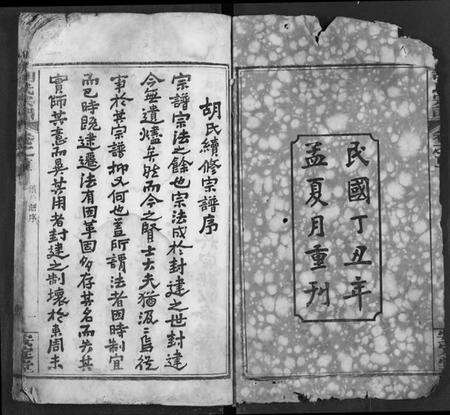 民國丁丑年
孟夏月重刊
胡氏續修宗譜序
宗譜宗法之餘也宗法成於封建之世封建
今無遺燼矣然而今之賢士大夫猶汲汲焉從
事於其宗譜抑又何也蓋所謂法者因時制宜
而已時既建遷法有因革固多存其名而失其
實師其意而異其用者封建之制壞於東周末